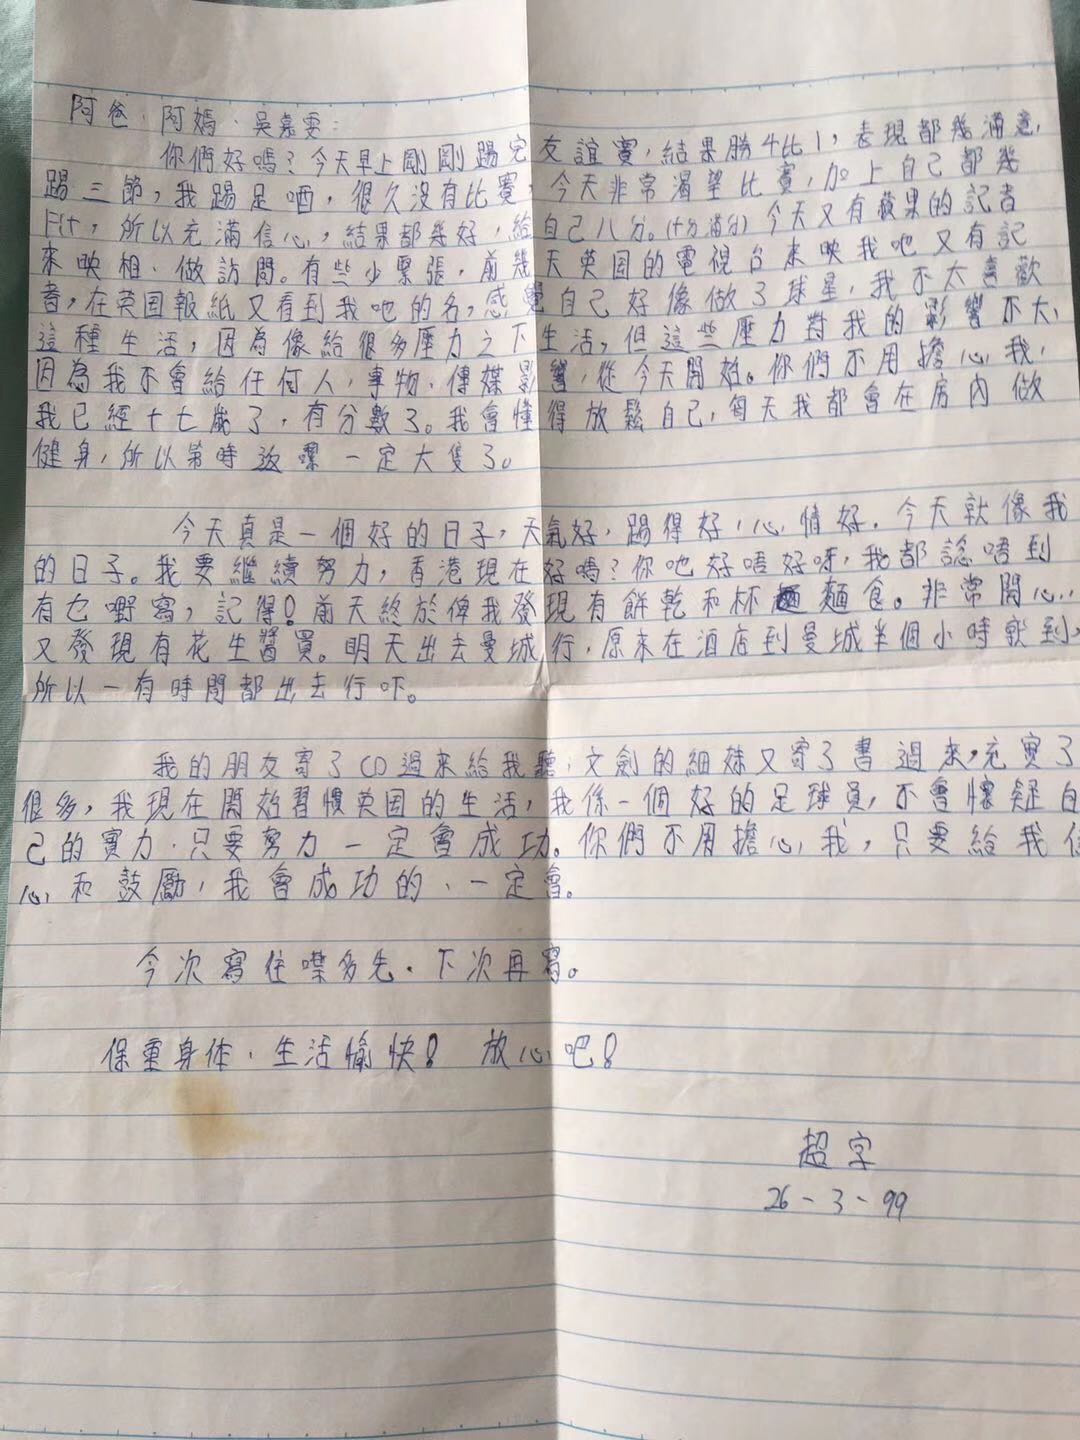 阿爸、阿媽、吳嘉雯：
你們好嗎？今天早上剛剛踢完友誼賽，結果勝4比1，表現都幾滿意，
踢三節，我踢足哂，很久沒有比賽，今天非常渴望比賽，加上自己都幾
Fit，所以充滿信心，結果都幾好，給自己八分。(十分滿分) 今天又有蘋果的記者
來映相、做訪問。有些少緊張，前幾天英国的電視台來映我吔又有記
者，在英国報紙又看到我吔的名，感覺自己好像做了球星，我不太喜歡
這種生活，因為像給很多壓力之下生活，但這些壓力對我的影響不大，
因為我不會給任何人，事物、傳媒影響，從今天開始。你們不用擔心我，
我已經十七歲了，有分數了。我會懂得放鬆自己，每天我都會在房內做
健身，所以第時返嚟一定大隻了。
今天真是一個好的日子，天氣好，踢得好，心情好。今天就像我
的日子。我要繼續努力，香港現在好嗎？你吔好唔好呀，我都諗唔到
有乜嘢寫，記得！前天終於俾我發現有餅乾和杯麵食。非常開心，
又發現有花生醬買。明天出去曼城行，原來在酒店到曼城半個小時就到，
所以一有時間都出去行吓。
我的朋友寄了CD過來給我聽，文劍的細妹又寄了書過來，充實了
很多，我現在開始習慣英国的生活，我係一個好的足球員，不會懷疑自
己的實力，只要努力一定會成功。你們不用擔心我，只要給我信
心和鼓勵，我會成功的、一定會。
今次寫住噤多先．下次再寫。
保重身体、生活愉快！ 放心吧！
超字
26-3-99